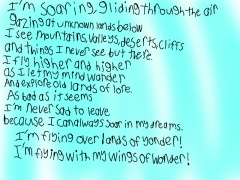 I'm soaring, gliding through the air
gazing at unknown lands below
I see mountains, valleys, deserts, cliffs
and things I never see but there.
I fly higher and higher
as I let my mind wander
And explore old lands of lore.
As bad as it seems
I'm never sad to leave
because I can always soar in my dreams.
I'm flying over lands of yonder!
I'm flying with my wings of wonder!